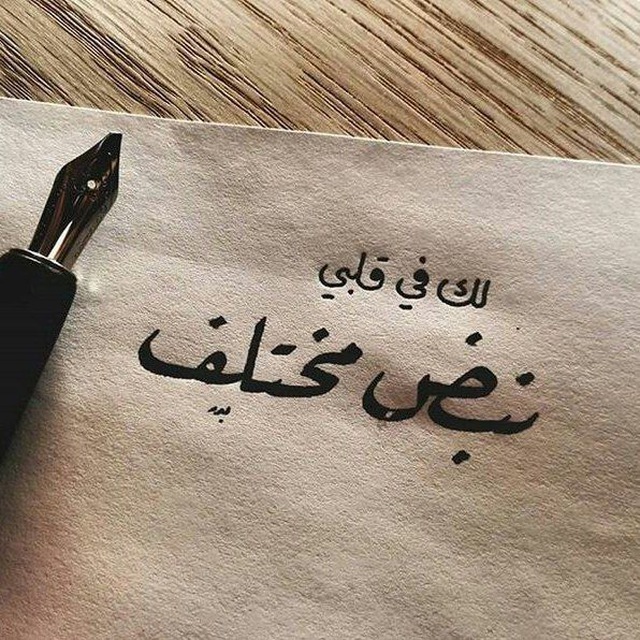 لك في قلبي
نبض مختلف